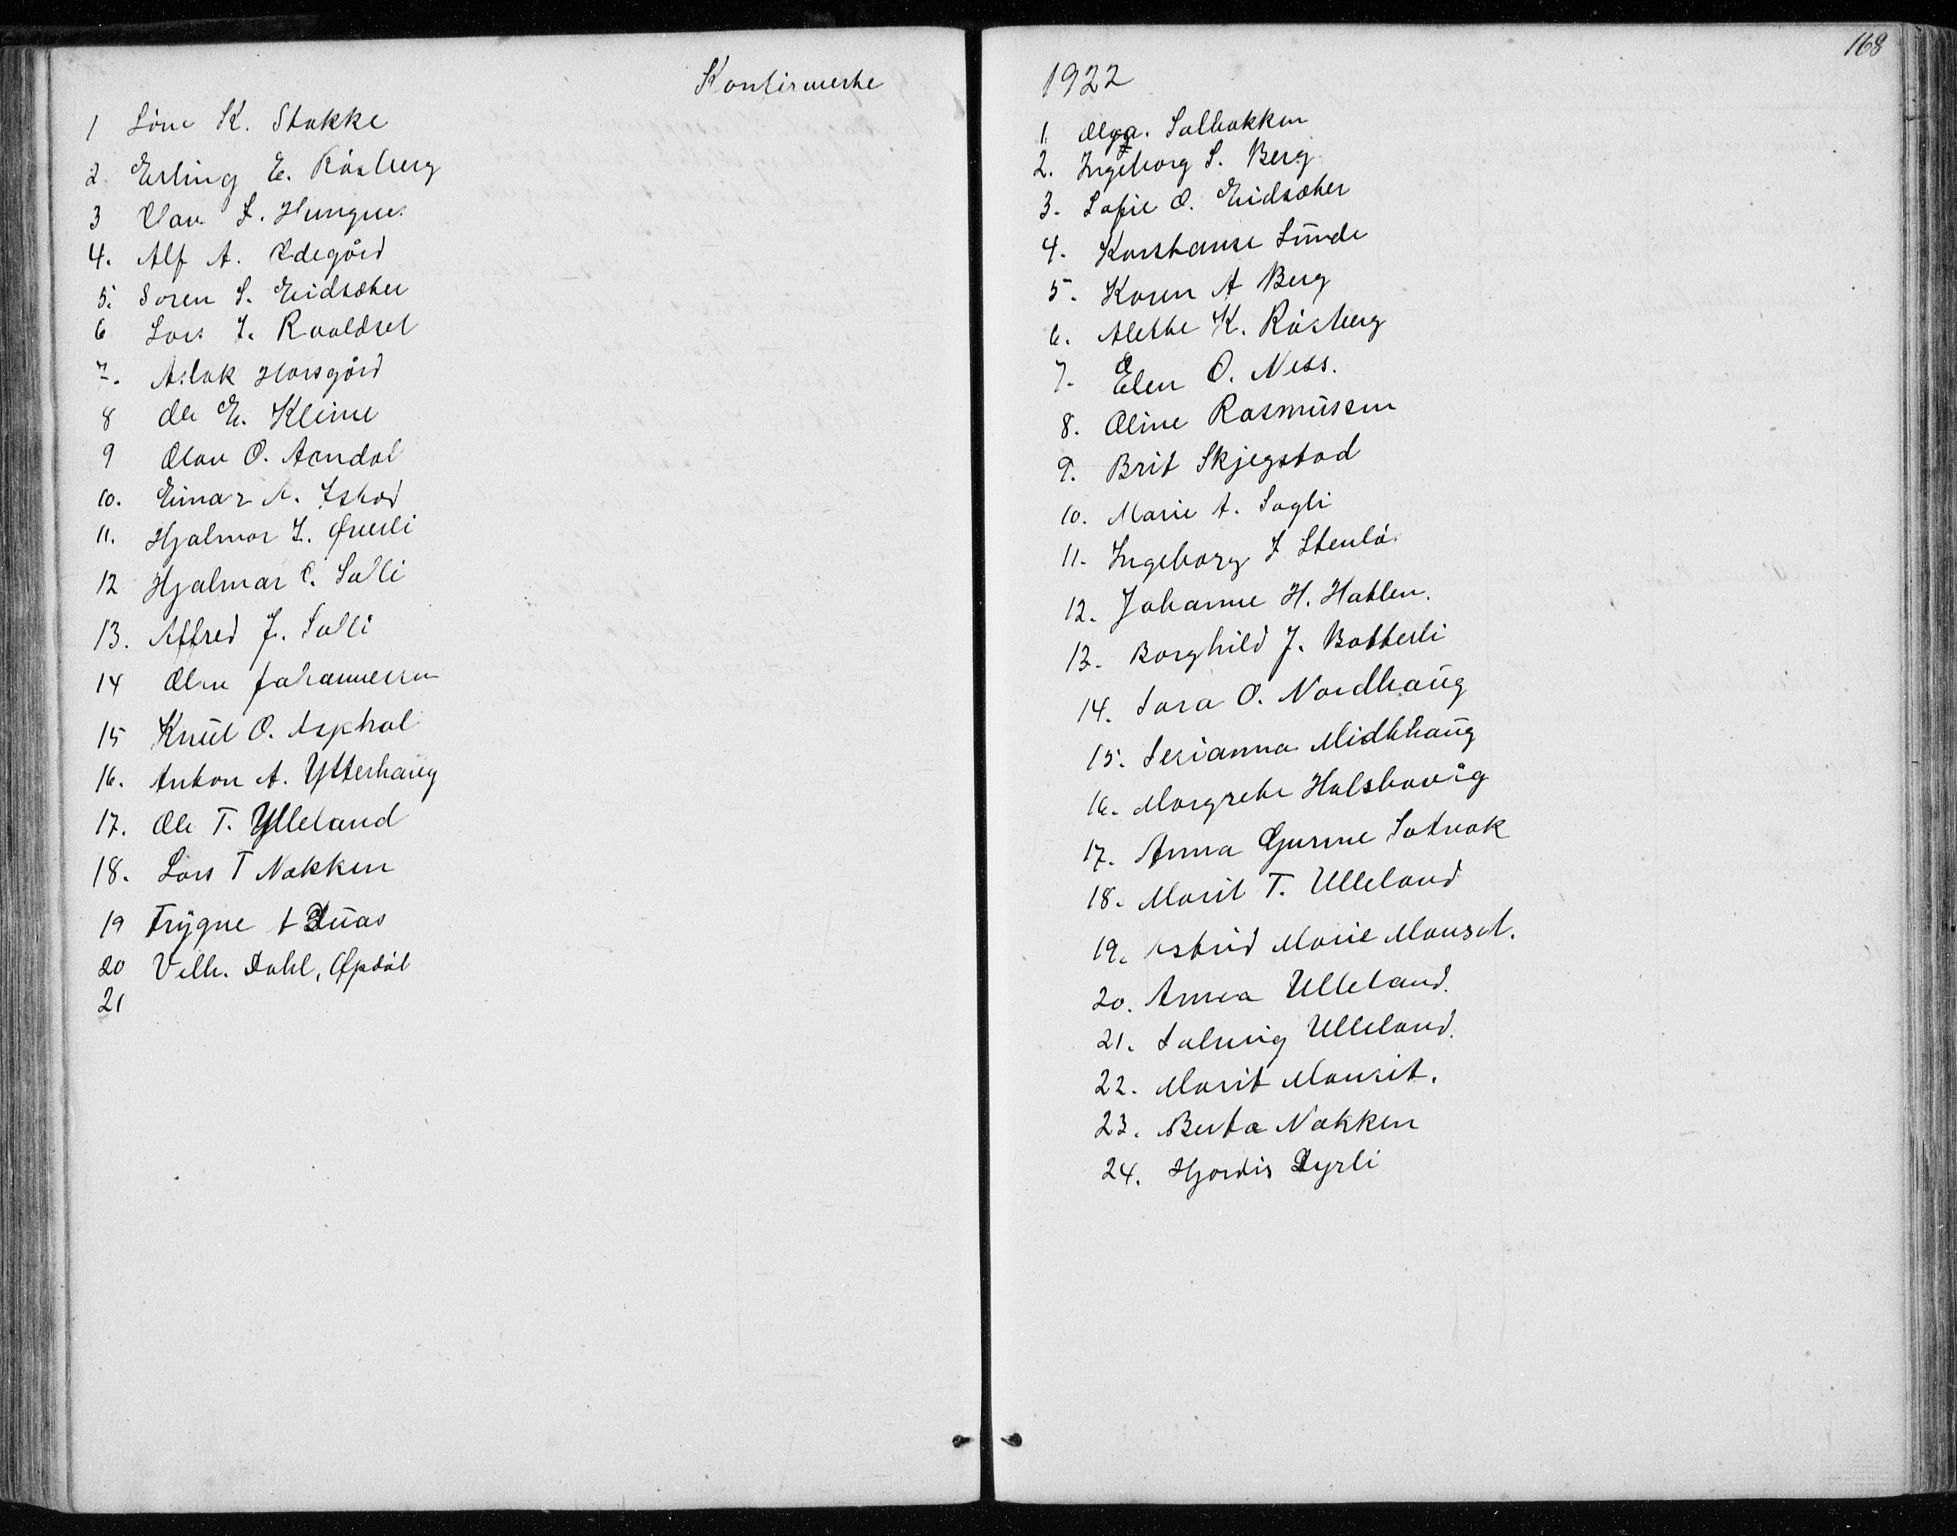 Konfirmerte
1 Lone K. Stakke
2 Erling E. Råsberg
3 Olav L. Hungnes
4. Alf A. Ødegård
5. Soren S. Eidsæter
6 Lars J. Roaldset
7. Aslak Horsgård
8 Ole E. Kleive
9 Olav O. Arndal
10. Einar A. Istad
11. Hjalmar I. Øverli
12 Hjalmar C. Solli
13. Alfred J. Solli
14 Olav Johannessen
15 Knut O. Asphol
16. Anton A. Ytterhaug
17. Ole T. Ylleland
18. Lars T Nakken
19 Trygve A
20 Vilh. Dahl, Opdøl
21
168
1922
1. Olga. Solbakken
2. Ingeborg S. Berg
3. Sofie O. Eidsæter
4. Konstanse Sunde
5. Karen A Berg
6. Alette K. Råsberg
7. Elen O. Ness.
8. Oline Rasmussen
9. Brit Skjegstad
10. Marie A. Sogli
11. Ingeborg I Stenlø.
12. Johanne H. Hatlen.
13. Borghild J. Botterli
14. Sara O. Nordhaug
15. Serianna Midthaug
16. Margrete Halsbovåg
17. Anna Gurine Sotnak
18. Marit T. Ulleland
19. Astrid Marie Mauset.
20. Anna Ulleland.
21. Solveig Ulleland.
22. Marit Mauset.
23. Berta Nakken
24. Hjordis Dyrli